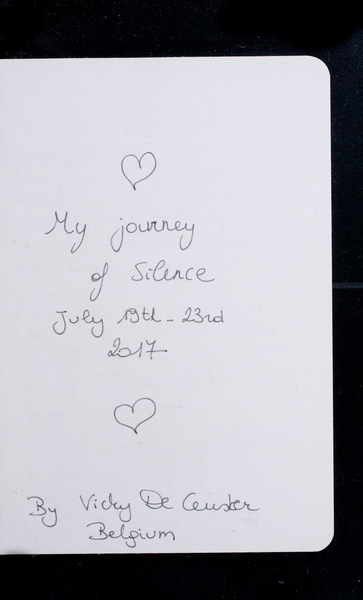 My journey
of Silence
July 19th - 23rd
2017
By Vicky De Ceuster
Belgium